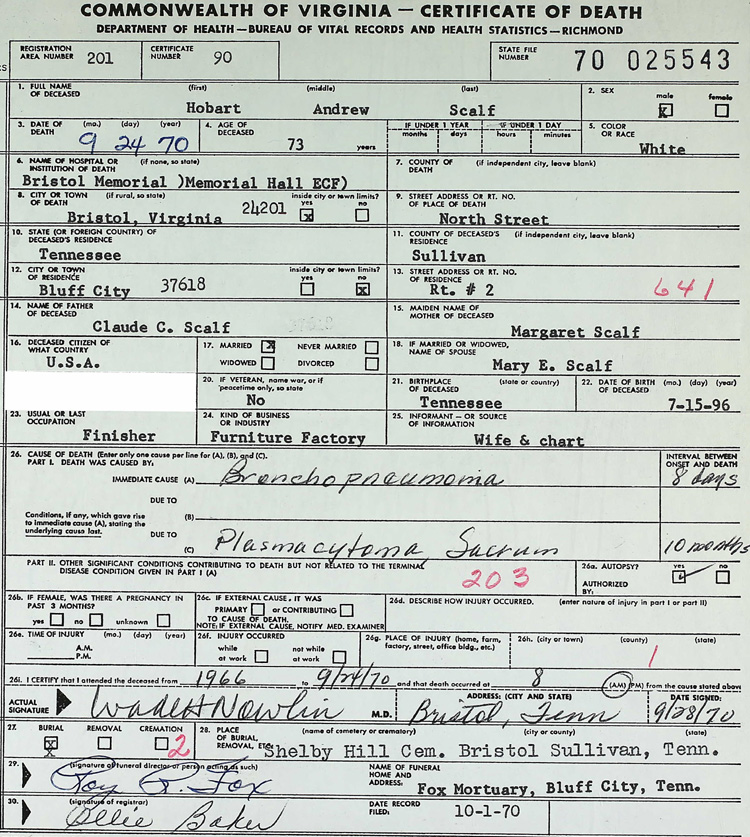 COMMONWEALTH OF VIRGINIA — CERTIFICATE OF DEATH
DEPARTMENT OF HEALTH—BUREAU OF VITAL RECORDS AND HEALTH STATISTICS—RICHMOND
REGISTRATION AREA NUMBER 201 CERTIFICATE NUMBER 90 STATE FILE NUMBER 70 025543
1. FULL NAME OF DECEASED (first) (middle) (last) 2. SEX male female
Hobart Andrew Scalf X
3. DATE OF DEATH (mo.) (day) (year) 4. AGE OF DECEASED IF UNDER 1 YEAR IF UNDER 1 DAY 5. COLOR OR RACE
9 24 70 73 years months days hours minutes White
6. NAME OF HOSPITAL OR INSTITUTION OF DEATH (if none, so state) 7. COUNTY OF DEATH (if independent city, leave blank)
Bristol Memorial )Memorial Hall ECF)
8. CITY OR TOWN OF DEATH (if rural, so state) inside city or town limits? yes no 9. STREET ADDRESS OR RT. NO. OF PLACE OF DEATH
Bristol, Virginia 24201 X North Street
10. STATE (OR FOREIGN COUNTRY) OF DECEASED'S RESIDENCE 11. COUNTY OF DECEASED'S RESIDENCE (if independent city, leave blank)
Tennessee Sullivan
12. CITY OR TOWN OF RESIDENCE inside city or town limits? yes no 13. STREET ADDRESS OR RT. NO. OF RESIDENCE
Bluff City 37618 X Rt. # 2 641
14. NAME OF FATHER OF DECEASED 15. MAIDEN NAME OF MOTHER OF DECEASED
Claude C. Scalf 37618 Margaret Scalf
16. DECEASED CITIZEN OF WHAT COUNTRY 17. MARRIED X NEVER MARRIED 18. IF MARRIED OR WIDOWED, NAME OF SPOUSE
U.S.A. WIDOWED DIVORCED Mary E. Scalf
20. IF VETERAN, name war, or if peacetime only, so state 21. BIRTHPLACE OF DECEASED (state or country) 22. DATE OF BIRTH (mo.) (day) (year)
No Tennessee 7-15-96
23. USUAL OR LAST OCCUPATION 24. KIND OF BUSINESS OR INDUSTRY 25. INFORMANT — OR SOURCE OF INFORMATION
Finisher Furniture Factory Wife & chart
26. CAUSE OF DEATH (Enter only one cause per line for (A), (B), and (C).) INTERVAL BETWEEN ONSET AND DEATH
PART I. DEATH WAS CAUSED BY:
IMMEDIATE CAUSE (A) Bronchopneumonia 8 days
DUE TO
Conditions, if any, which gave rise to immediate cause (A), stating the underlying cause last. (B)
DUE TO
(C) Plasmacytoma, Sacrum 10 months
PART II. OTHER SIGNIFICANT CONDITIONS CONTRIBUTING TO DEATH BUT NOT RELATED TO THE TERMINAL DISEASE CONDITION GIVEN IN PART I (A) 26a. AUTOPSY? yes no
203 AUTHORIZED BY:
26b. IF FEMALE, WAS THERE A PREGNANCY IN PAST 3 MONTHS? 26c. IF EXTERNAL CAUSE, IT WAS 26d. DESCRIBE HOW INJURY OCCURRED. (enter nature of injury in part I or part II)
yes no unknown PRIMARY or CONTRIBUTING TO CAUSE OF DEATH.
NOTE: IF EXTERNAL CAUSE, NOTIFY MED. EXAMINER
26e. TIME OF INJURY (mo.) (day) (year) 26f. INJURY OCCURRED 26g. PLACE OF INJURY (home, farm, factory, street, office bldg., etc.) 26h. (city or town) (county) (state)
A.M. P.M. while at work not while at work 1
26i. I CERTIFY that I attended the deceased from 1966 to 9/24/70 and that death occurred at 8 (AM) (PM) from the cause stated above
ACTUAL SIGNATURE Wade H Nowlin M.D. ADDRESS: (CITY AND STATE) Bristol, Tenn DATE SIGNED: 9/28/70
27. BURIAL REMOVAL CREMATION 28. PLACE OF BURIAL, REMOVAL, ETC. (name of cemetery or crematory) (city or county) (state)
X 2 Shelby Hill Cem. Bristol Sullivan, Tenn.
29. (signature of funeral director or person acting as such) NAME OF FUNERAL HOME AND ADDRESS:
Roy R. Fox Fox Mortuary, Bluff City, Tenn.
30. (signature of registrar) DATE RECORD FILED:
Ollie Baker 10-1-70